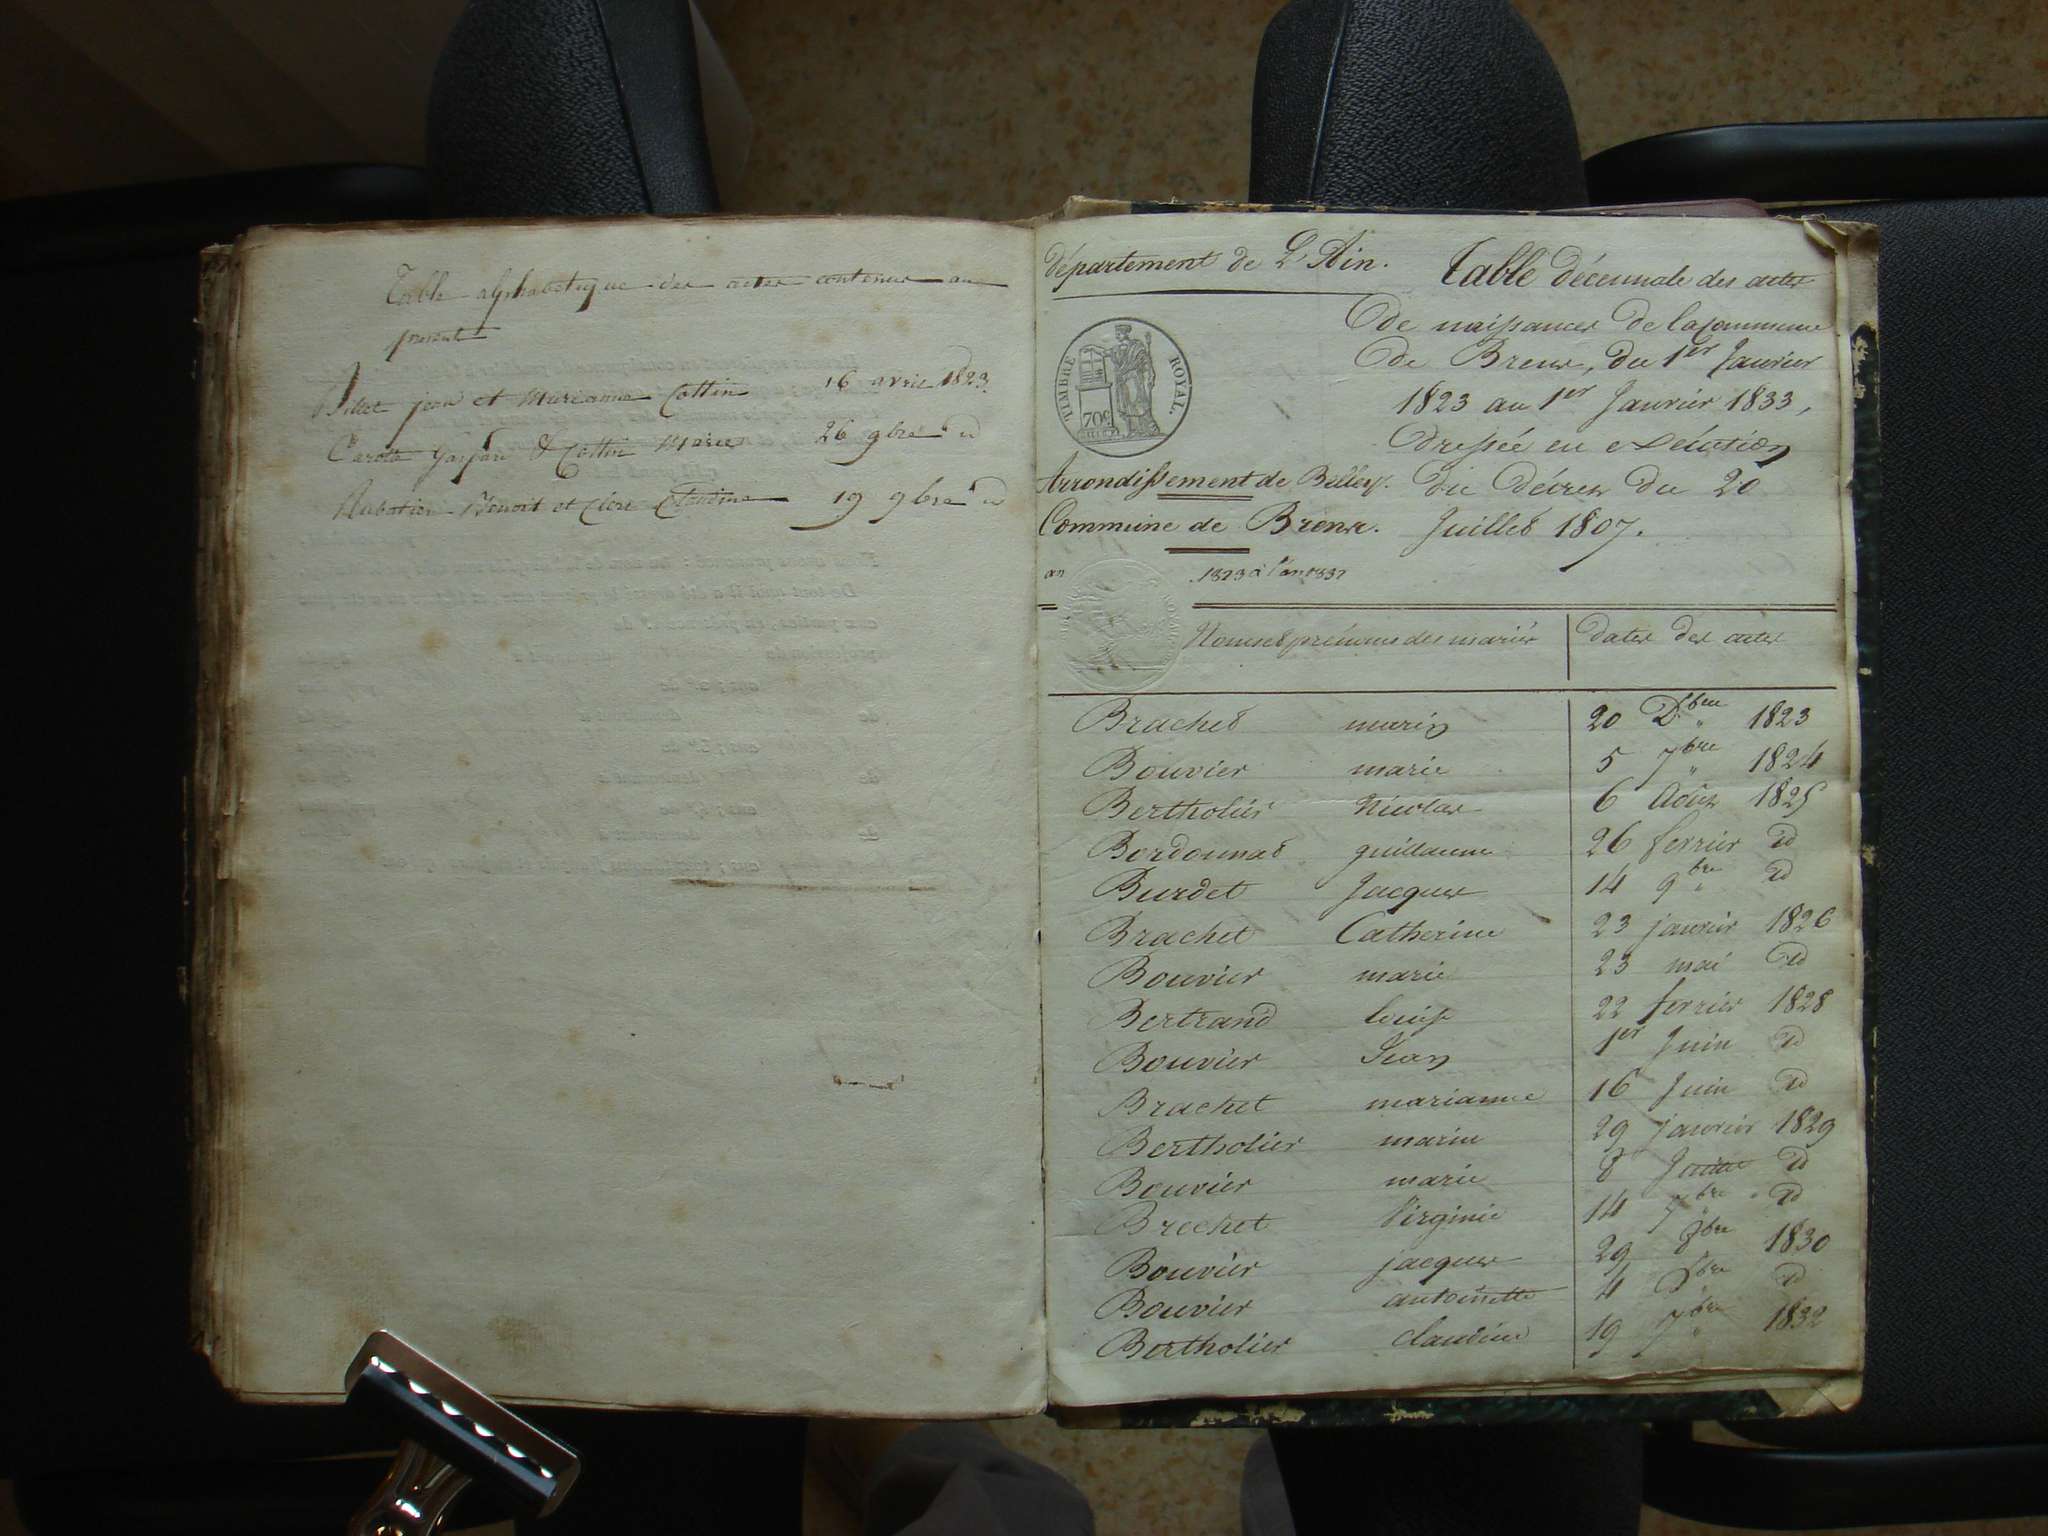 Table alphabetique des actes contenus au
présent
Billet jean et Marianne Cottin 16 avril 1823.
Gaspard & Cottin Marie 26 9bre id
Rabatier Benoit et Claudine 19 9bre id
département de L'Ain.
TIMBRE ROYAL.
70c
Arrondissement de Belley.
Commune de Brens.
an 1823 à l'an 1832
Table décennale des actes
De naissances de la Commune
De Brens, du 1er Janvier
1823 au 1er Janvier 1833,
Dressée en exécution
du décret du 20
Juillet 1807.
Noms et prénoms des mariés Dates des actes
Brachet marie 20 Xbre 1823
Bouvier marie 5 7bre 1824
Bertholier Nicolas 6 Août 1825
Bordonnat guillaume 26 ferrier id
Burdet Jacques 14 9bre id
Brachet Catherine 23 janvier 1826
Bouvier marie 23 mai id
Bertrand louise 22 ferrier 1828
Bouvier Jean 1er Juin id
Brachet marianne 16 Juin id
Bertholier marie 29 janvier 1829
Bouvier marie 8 id
Brechet Virginie 14 7bre id
Bouvier jacques 29 8bre 1830
Bouvier antoinette 4 Xbre id
Bertholier claudine 19 7bre 1832